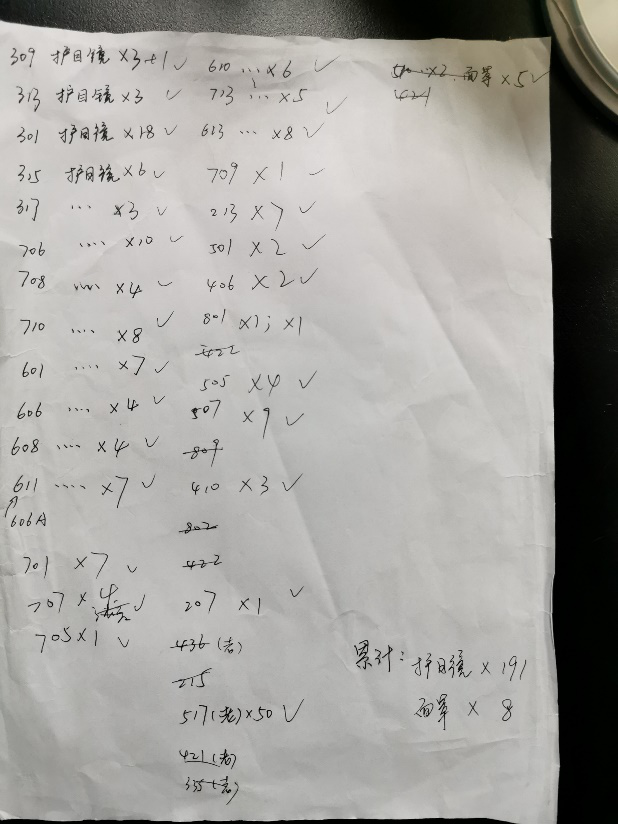 309 护目镜 ×3+1 ✓
313 护目镜 ×3 ✓
301 护目镜 ×18 ✓
315 护目镜 ×6 ✓
317 .... ×3 ✓
706 .... ×10 ✓
708 .... ×4 ✓
710 .... ×8 ✓
601 .... ×7 ✓
606 .... ×4 ✓
608 .... ×4 ✓
611 .... ×7 ✓
606A
701 ×7 ✓
707 × 4 ✓
705 ×1 ✓
610 ... ×6 ✓
713 ... ×5 ✓
613 ... ×8 ✓
709 ×1 ✓
213 ×7 ✓
501 ×2 ✓
406 ×2 ✓
801 ×1; ×1
422
505 ×4 ✓
507 ×9 ✓
809
410 ×3 ✓
802
422
207 ×1 ✓
436 (老)
215
517 (老) ×50 ✓
421 (老)
335 (老)
×2 面罩 ×5 ✓
421
累计: 护目镜 × 191
面罩 × 8